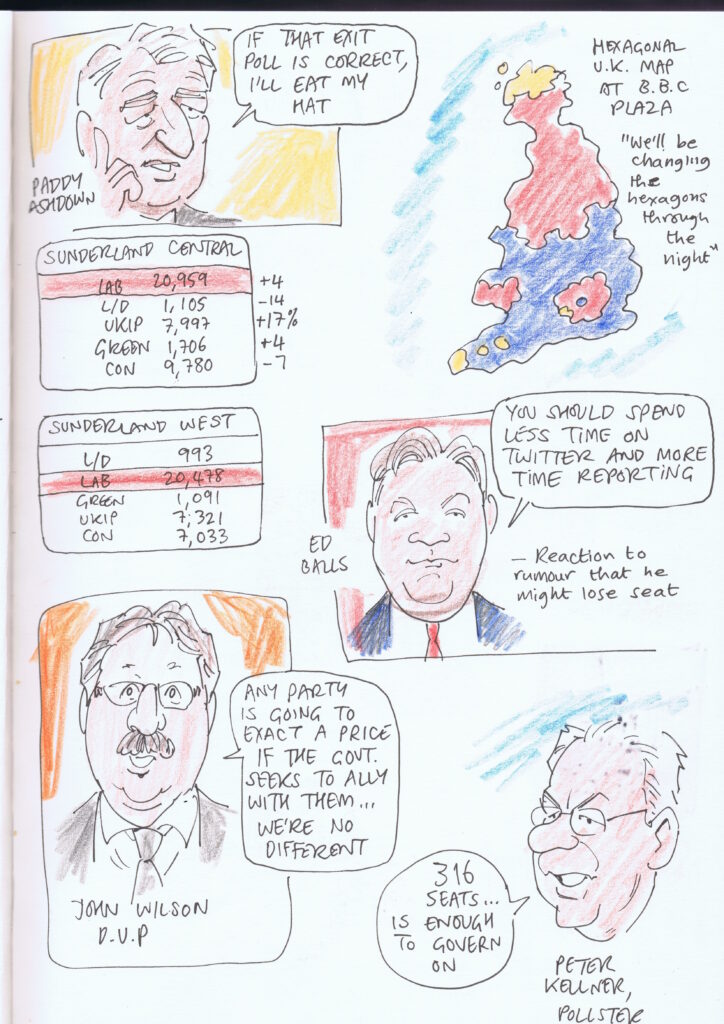 IF THAT EXIT
POLL IS CORRECT,
I'LL EAT MY
HAT
PADDY
ASHDOWN
HEXAGONAL
U.K. MAP
AT B.B.C
PLAZA
"We'll be
changing
the
hexagons
through
the
night"
SUNDERLAND CENTRAL
LAB 20,959 +4
L/D 1,105 -14
UKIP 7,997 +17%
GREEN 1,706 +4
CON 9,780 -7
SUNDERLAND WEST
L/D 993
LAB 20,478
GREEN 1,091
UKIP 7,321
CON 7,033
YOU SHOULD SPEND
LESS TIME ON
TWITTER AND MORE
TIME REPORTING
ED
BALLS
— Reaction to
rumour that he
might lose seat
ANY PARTY
IS GOING TO
EXACT A PRICE
IF THE GOVT.
SEEKS TO ALLY
WITH THEM...
WE'RE NO
DIFFERENT
JOHN WILSON
D.U.P
316
SEATS...
IS ENOUGH
TO GOVERN
ON
PETER
KELLNER,
POLLSTER